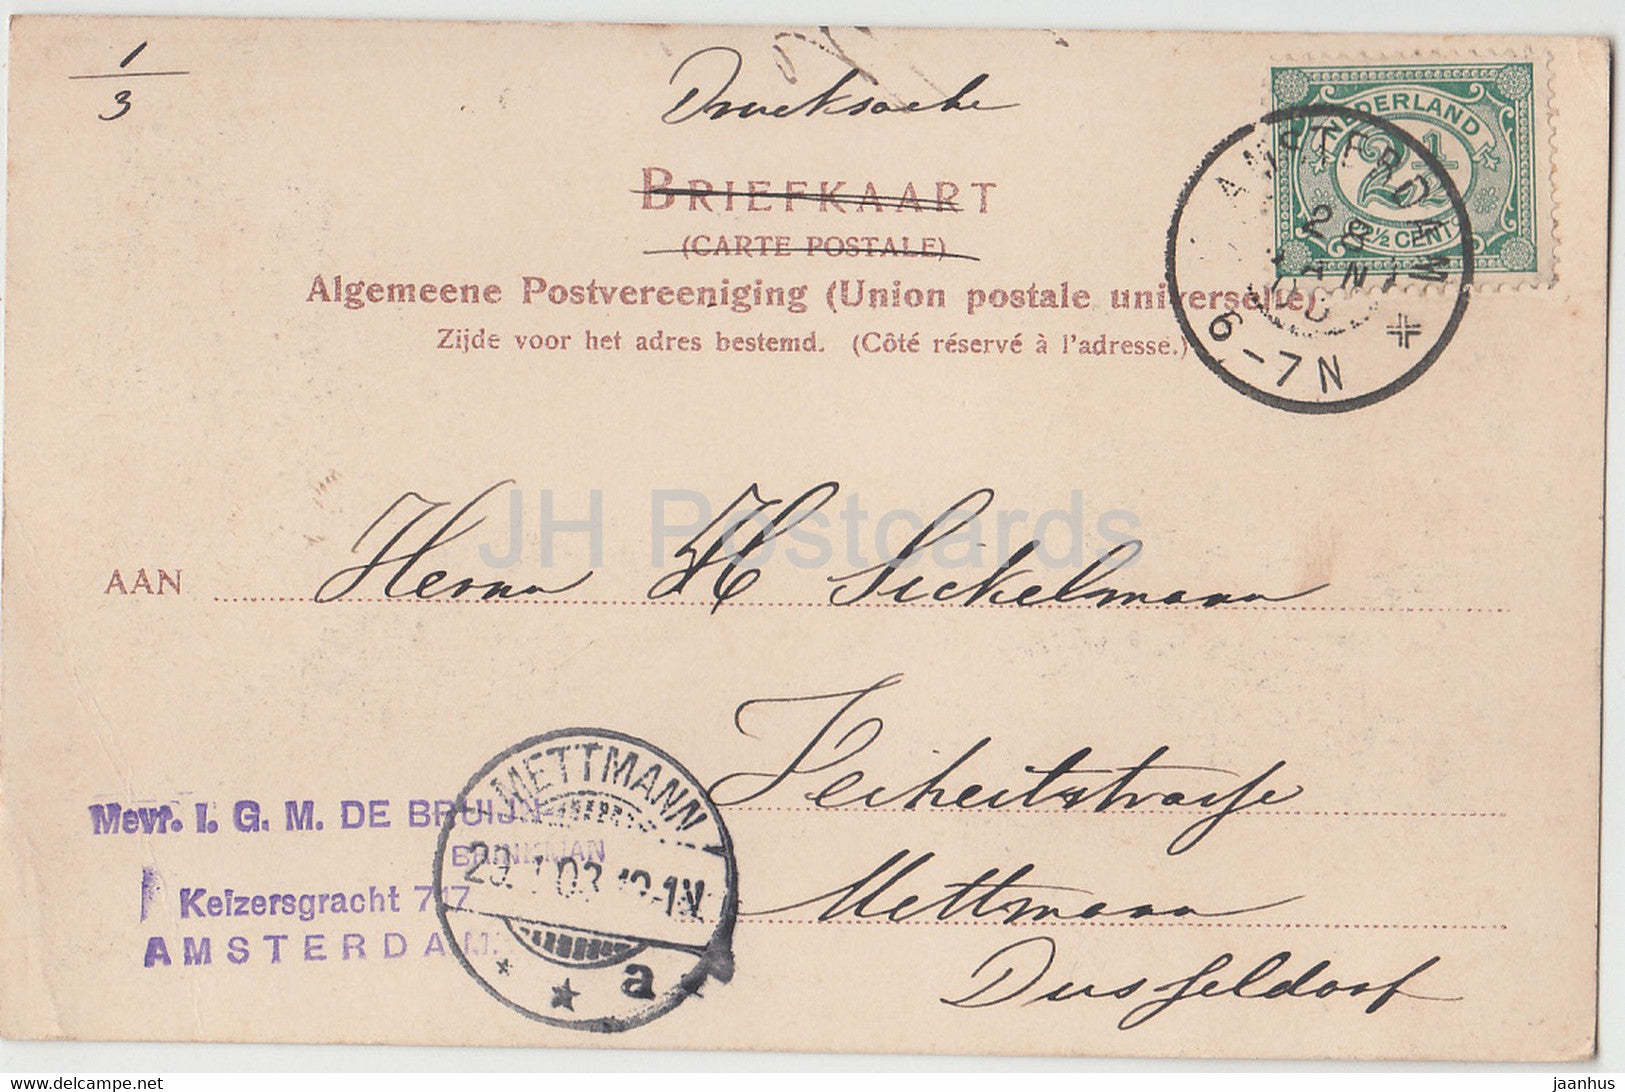 1
3
Drucksache
NEDERLAND
2½
2½ CENT
AMSTERDAM
28
JAN
6-7N
BRIEFKAART
(CARTE POSTALE)
Algemeene Postvereeniging (Union postale universelle)
Zijde voor het adres bestemd. (Côté réservé à l'adresse.)
JH Postcards
AAN Herrn H Sickelmann
Mevr. I. G. M. DE BRUIJN-
BRINKMAN
Keizersgracht 717
AMSTERDAM.
METTMANN
29.1.03.12-1N
a
Mettmann
Dusseldorf
jaanhus
delcampe.net